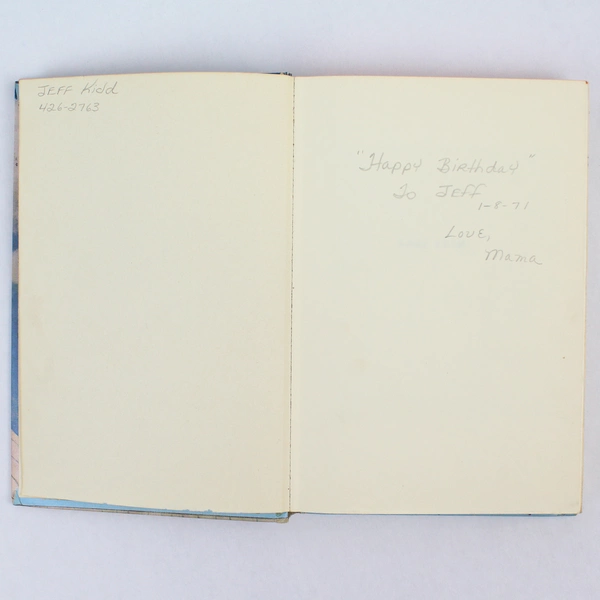 JEFF Kidd
426-2763
"Happy Birthday"
To JEFF
1-8-71
Love,
Mama